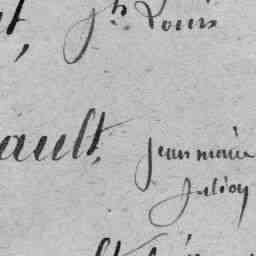 t, jh Louis
ault, jean marie
Julien